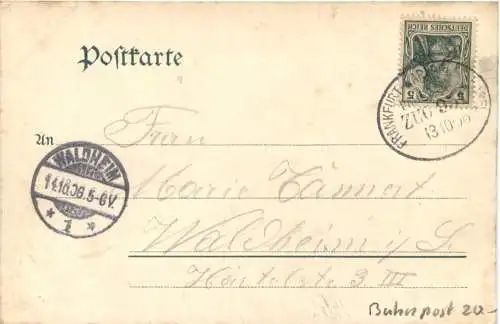 Postkarte
DEUTSCHES REICH
5 5
FRANKFURT
ZUG 9
13 10 06
An
WALDHEIM
14.10.06.5-6V.
* 1 *
Frau
Marie Tännert
Waldheim i/S.
Härtelstr. 3. III
Bahnpost 20.-